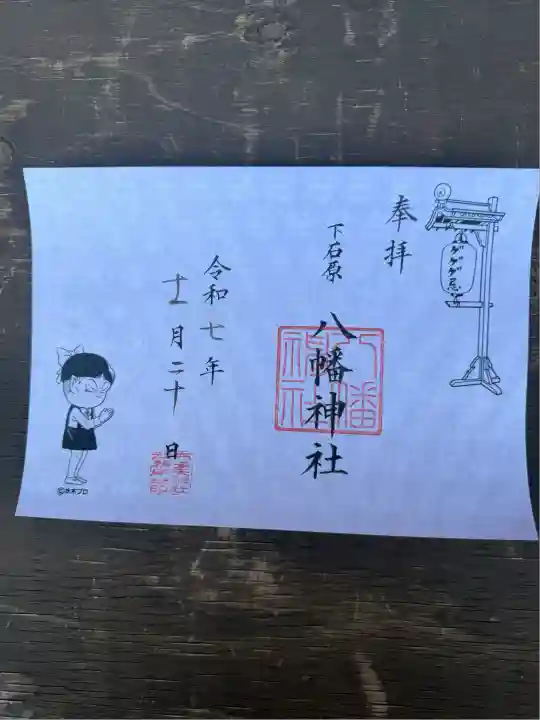 奉拝
ゲゲゲ忌
下石原
八幡神社
八幡
神社
令和七年
十一月二十日
©水木プロ